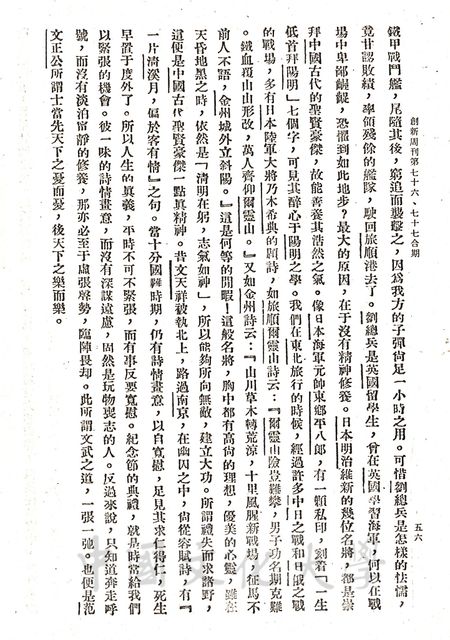 創新周刊第七十六、七十七合期
五六
鐵甲戰鬥艦，尾隨其後，窮追而襲擊之，因爲我方的子彈尙足一小時之用。可惜劉總兵是怎樣的怯懦，
竟甘認敗績，率領殘餘的艦隊，駛回旅順港去了。劉總兵是英國留學生，曾在英國學習海軍，何以在戰
場中卑鄙齷齪，恐懼到如此地步？最大的原因，在于沒有精神修養。日本明治維新的幾位名將，都是崇
拜中國古代的聖賢豪傑，故能善養其浩然之氣。像日本海軍元帥東鄉平八郎，有一顆私印，刻着「一生
低首拜陽明」七個字，可見其醉心于陽明之學。我們在東北旅行的時候，經過許多中日之戰和日俄之戰
的戰場，多有日本陸軍大將乃木希典的題詩，如旅順爾靈山詩云：『爾靈山險豈難攀，男子功名期克難
。鐵血覆山山形改，萬人齊仰爾靈山。』又如金州詩云：『山川草木轉荒涼，十里風腥新戰場，征馬不
前人不語，金州城外立斜陽。』這是何等的閒暇！這般名將，胸中都有高尙的理想，優美的心靈，雖在
天昏地黑之時，依然是「淸明在躬，志氣如神」，所以能夠所向無敵，建立大功。所謂禮失而求諸野，
這便是中國古代聖賢豪傑一點眞精神。昔文天祥被執北上，路過南京，在幽囚之中，尙從容賦詩，有『
一片淸溪月，偏於客有情』之句。當十分國難時期，仍有詩情畫意，以自寬慰，足見其求仁得仁，死生
早置于度外了。所以人生的眞義，平時不可不緊張，而有事反要寬慰。紀念節的典禮，就是時常給我們
以緊張的機會。彼一味的詩情畫意，而沒有深謀遠慮，固然是玩物喪志的人。反過來說，只知道奔走呼
號，而沒有淡泊甯靜的修養，那亦必至于虛張聲勢，臨陣畏却。此所謂文武之道，一張一弛。也便是范
文正公所謂士當先天下之憂而憂，後天下之樂而樂。
中國文化大學